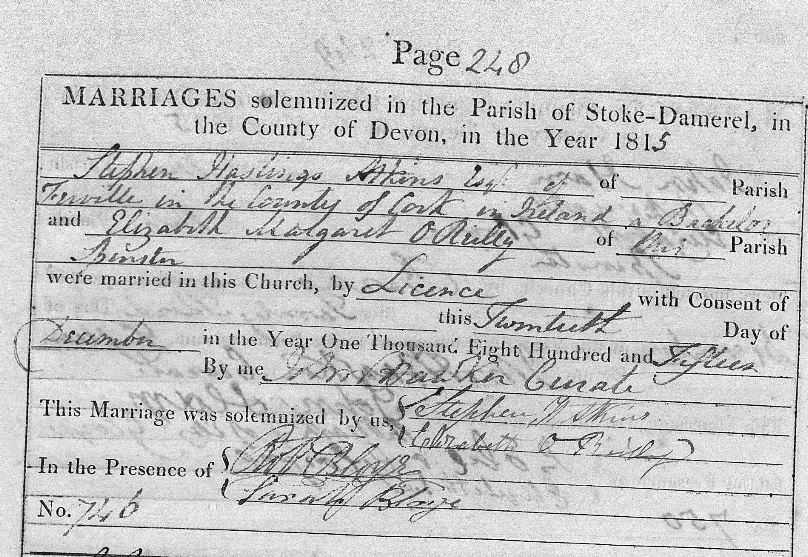 Page 248
MARRIAGES solemnized in the Parish of Stoke-Damerel, in
the County of Devon, in the Year 1815
Stephen Hastings Atkins Esqr of of Parish
Ferville in the County of Cork in Ireland a Bachelor
and Elizabeth Margaret O Reilly of this Parish
Spinster
were married in this Church, by Licence with Consent of
this Twentieth Day of
December in the Year One Thousand Eight Hundred and Fifteen
By me John Hawker Curate
This Marriage was solemnized by us, Stephen H Atkins
Elizabeth O Reilly
In the Presence of
Sarah Blaye
No. 746